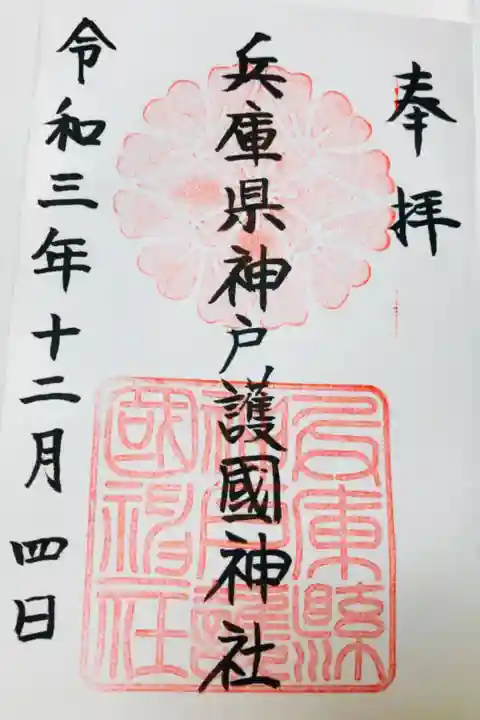 奉拝
兵庫県神戸護國神社
令和三年十二月四日
兵庫縣
神戸護
國神社